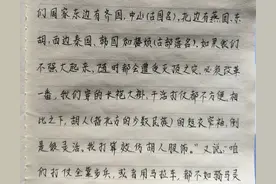 们国家东边有齐国、中山(古国名),北边有燕国、东
胡,西边秦国、韩国和楼烦(古部落名),如果我们
不强大起来,随时都会遭受灭顶之灾,必须改革
一番。我们穿的长袍大褂,干活打仗都不方便,相
比之下,胡人(指北方的少数民族)的短衣窄袖,倒
是很灵活,我打算仿效胡人服饰。”又说:“咱
们打仗全靠步兵,或者用马拉车,都不如骑马灵